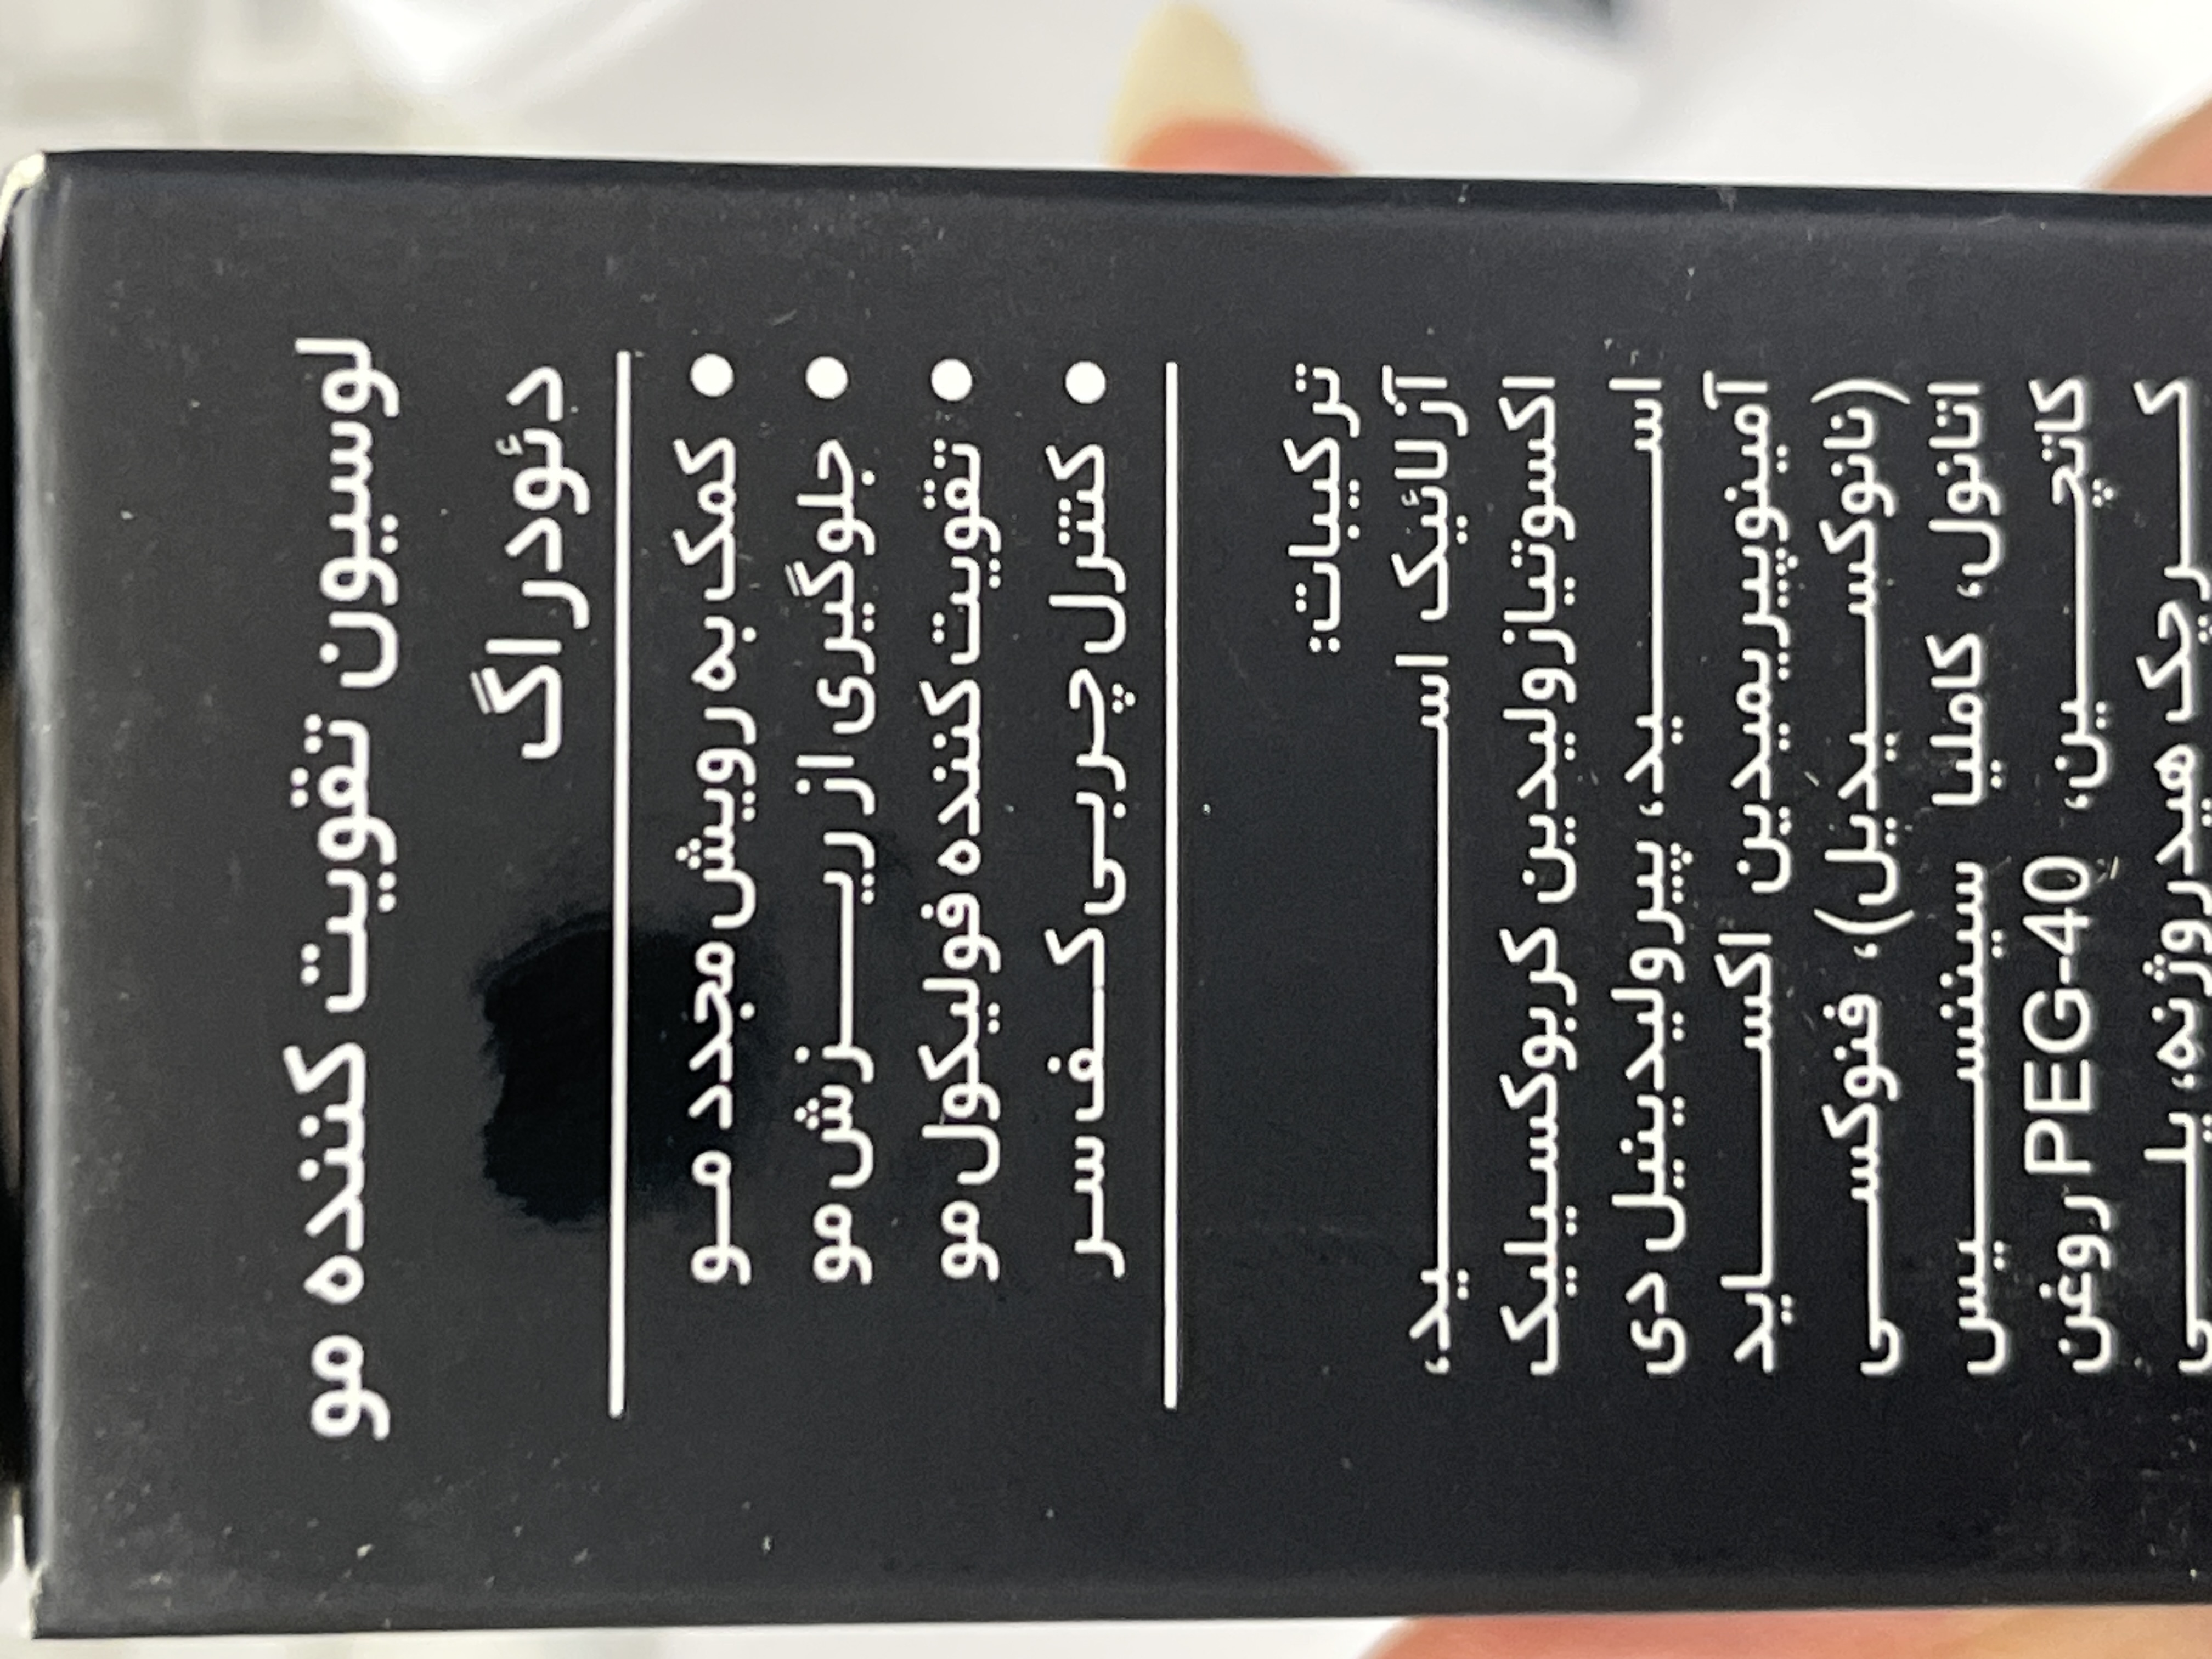 لوسیون تقویت کننده مو
دئودراگ
● کمک به رویش مجدد مو
● جلوگیری از ریزش مو
● تقویت کننده فولیکول مو
● کنترل چربی کف سر
ترکیبات:
آزلائیک اسید،
اکسوتیازولیدین کربوکسیلیک
اسید، پیرولیدینیل دی
آمینوپیریمیدین اکساید
(نانوکسیدیل)، فنوکسی
اتانول، کاملیا سیننسیس
کاتچین، PEG-40 روغن
کرچک هیدروژنه، پلی